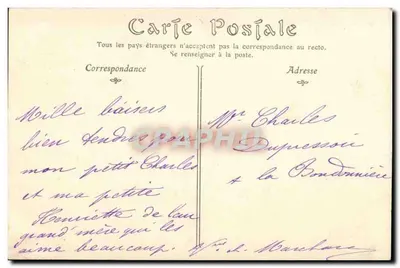 Carte Postale
Tous les pays étrangers n'acceptent pas la correspondance au recto.
Se renseigner à la poste.
Correspondance
Adresse
Mille baisers
bien tendres pour
mon petit Charles
et ma petite
Henriette de leur
grand'mère qui les
aime beaucoup.
Mr Charles
Dupressoir
à la Bondonnière
Vve de